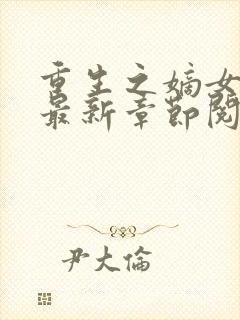 重生之嫡女
最新章节阅
尹大倫